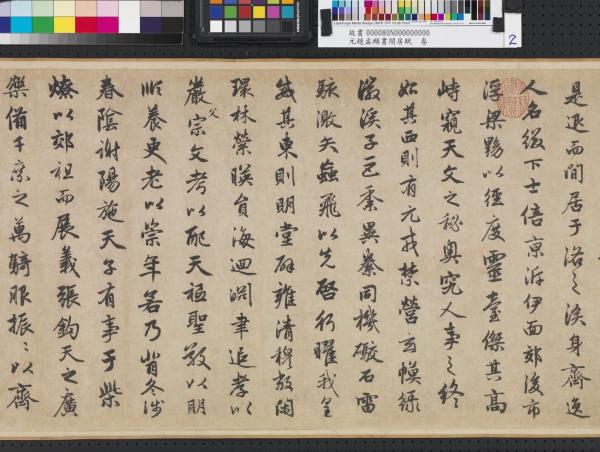 故書 000080N000000000
元趙孟頫書閒居賦 卷
2
是退而閒居于洛之涘身齊逸
人名綴下士倍京泝伊面郊後市
浮梁黝以徑度靈臺傑其高
峙窺天文之秘奧究人事之終
始其西則有元戎禁營玄幙綠
徽溪子巨黍異絭同機礮石雷
駭激矢蝱飛以先啓行曜我皇
威其東則明堂辟雍清穆敞閑
環林縈暎員海迴淵聿追孝以
嚴父宗文考以配天祗聖敬以明
順養更老以崇年若乃背冬涉
春陰謝陽施天子有事于柴
燎以郊祖而展義張鈞天之廣
樂備千乘之萬騎服振〻以齊